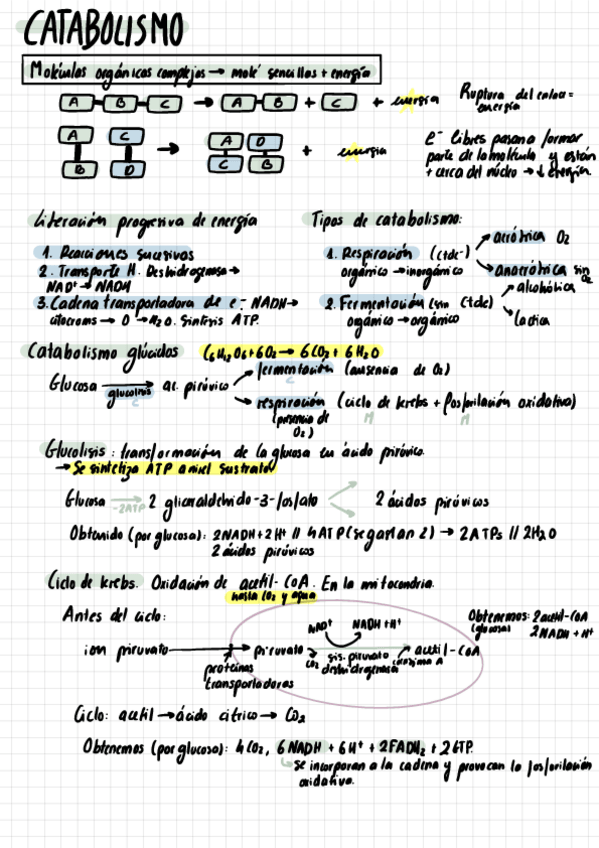 CATABOLISMO
Moléculas orgánicas complejas → molé sencillas + energía
A B C → A B + C + energía
Ruptura del enlace =
energía
A C
B D
→
A D
C B
+ energía
e⁻ libres pasan a formar
parte de la molécula y están
+ cerca del núcleo → ↓ energía.
Literación progresiva de energía
1. Reacciones sucesivas
2. Transporte H. Deshidrogenasa →
NAD⁺ → NADH
3. Cadena transportadora de e⁻ NADH →
citocroms → O → H₂O. Síntesis ATP.
Tipos de catabolismo:
1. Respiración (ctde⁻)
orgánico → inorgánico
aeróbica O₂
anaeróbica sin O₂
2. Fermentación (sin ctde)
orgánico → orgánico
alcohólica
láctica
Catabolismo glúcidos C₆H₁₂O₆ + 6O₂ → 6CO₂ + 6H₂O
Glucosa → ac. pirúvico
glucolisis
C
fermentación (ausencia de O₂)
C
respiración (ciclo de krebs + fosforilación oxidativa)
(presencia de
O₂)
M M
Glucolisis: transformación de la glucosa en ácido pirúvico.
→ Se sintetiza ATP a nivel sustrato
Glucosa → 2 gliceraldehido-3-fosfato 2 ácidos pirúvicos
-2ATP
Obtenido (por glucosa): 2NADH + 2H⁺ // 4ATP (se gastan 2) → 2ATPs // 2H₂O
2 ácidos pirúvicos
Ciclo de krebs. Oxidación de acetil-CoA. En la mitocondria.
hasta CO₂ y agua
Antes del ciclo:
NAD⁺ NADH + H⁺
ion piruvato → piruvato → acetil-CoA
proteínas
transportadoras
CO₂
sis. piruvato
deshidrogenasa
coenzima A
Obtenemos: 2 acetil-CoA
(glucosa) 2NADH + H⁺
Ciclo: acetil → ácido cítrico → CO₂
Obtenemos (por glucosa): 4CO₂, 6NADH + 6H⁺ + 2FADH₂ + 2GTP.
se incorporan a la cadena y provocan la fosforilación
oxidativa.